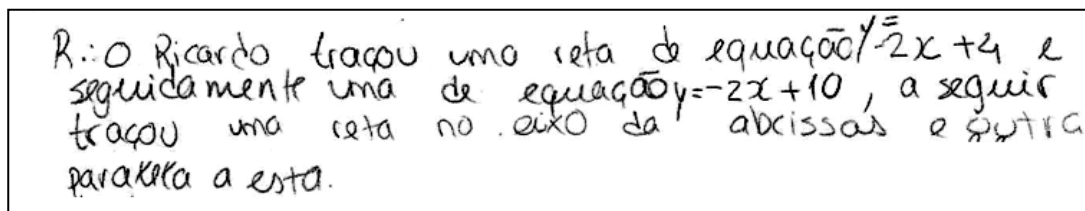 R.: O Ricardo traçou uma reta de equação y=-2x+4 e
seguidamente uma de equação y=-2x+10, a seguir
traçou uma reta no eixo da abcissas e outra
paralela a esta.